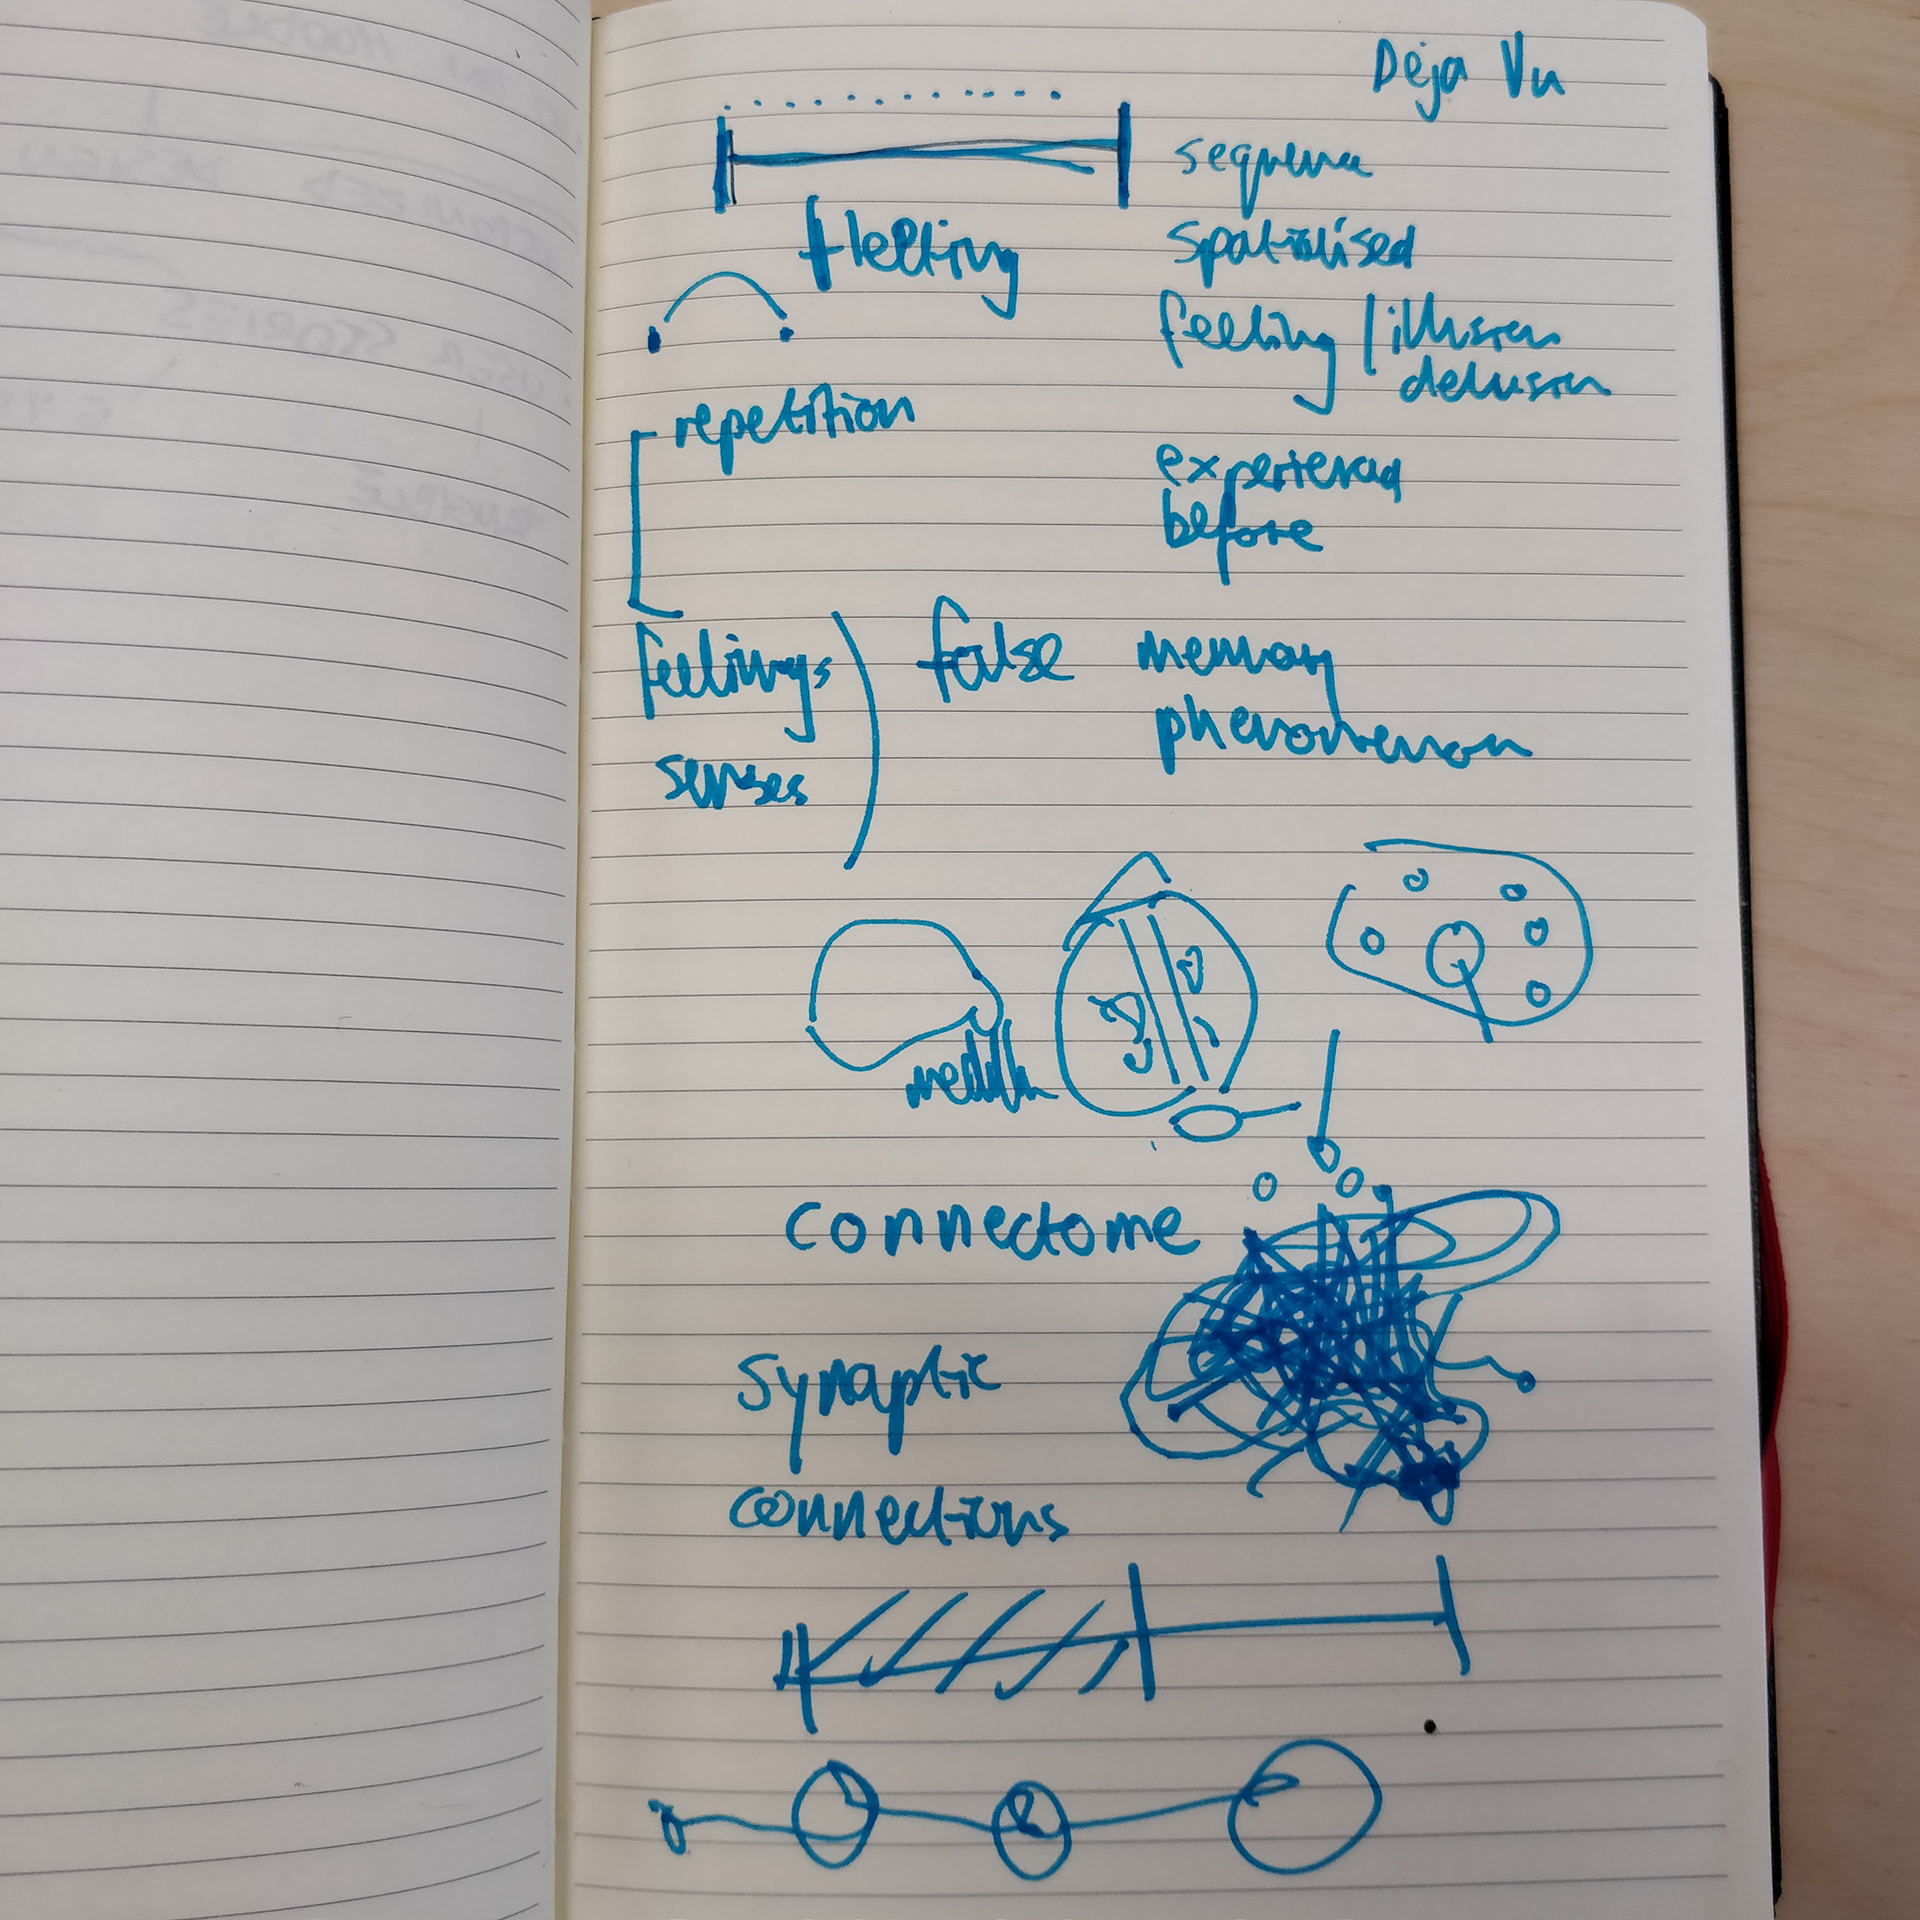 Deja Vu
sequence
fleeting
spatialised
feeling / illusion
delusion
repetition
experienced
before
feelings
false memory
phenomenon
senses
connectome
synaptic
connections